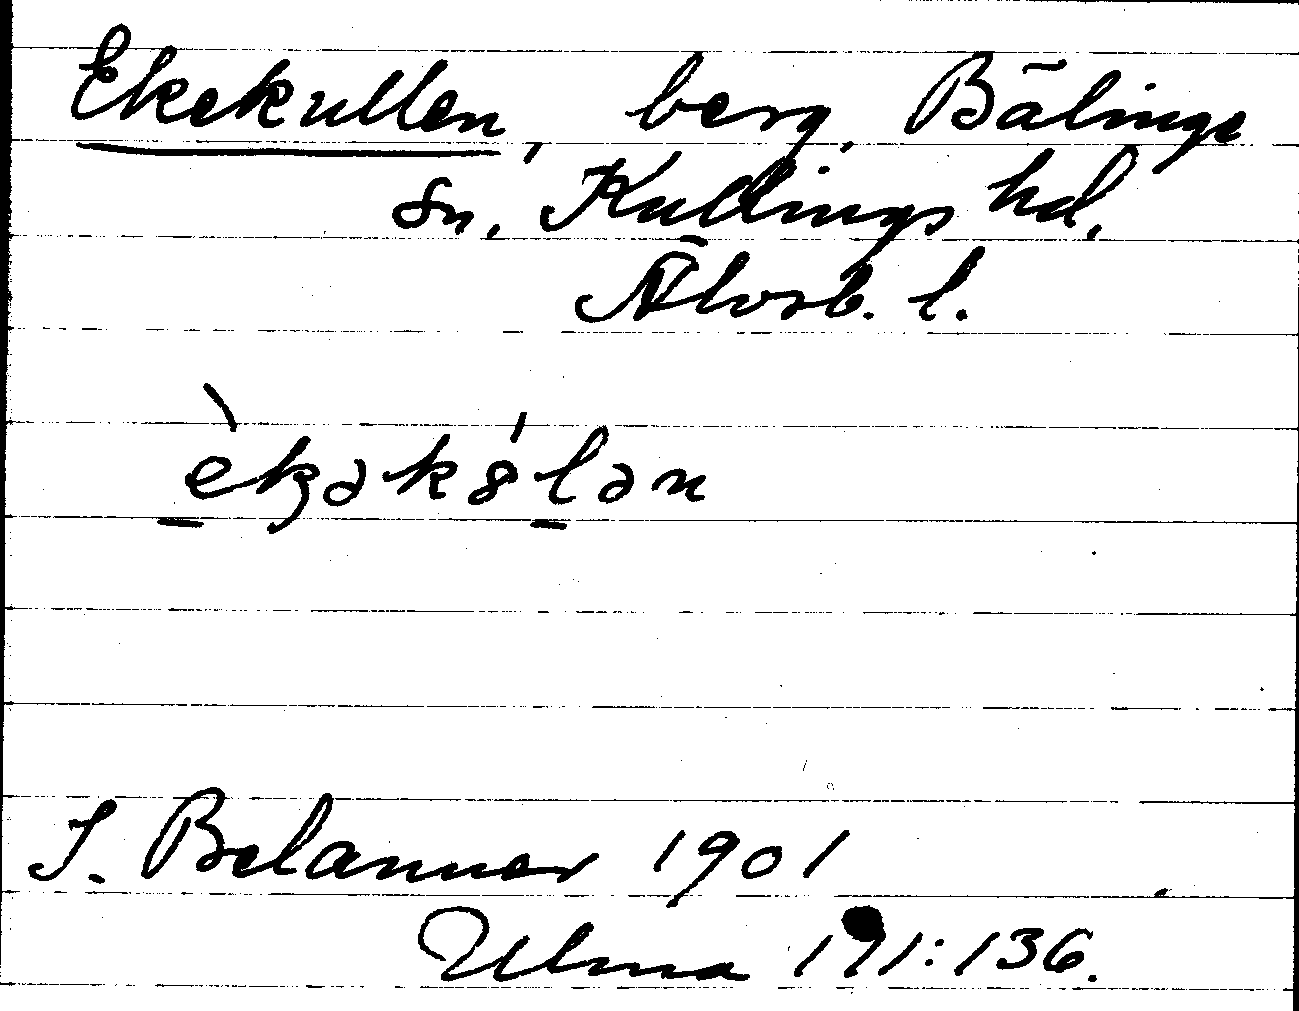 Ekekullen, berg, Bälinge
sn, Kullings hd,
Älvsb. l.
èkəkúlən
S. Belanner 1901
Ulma 191:136.